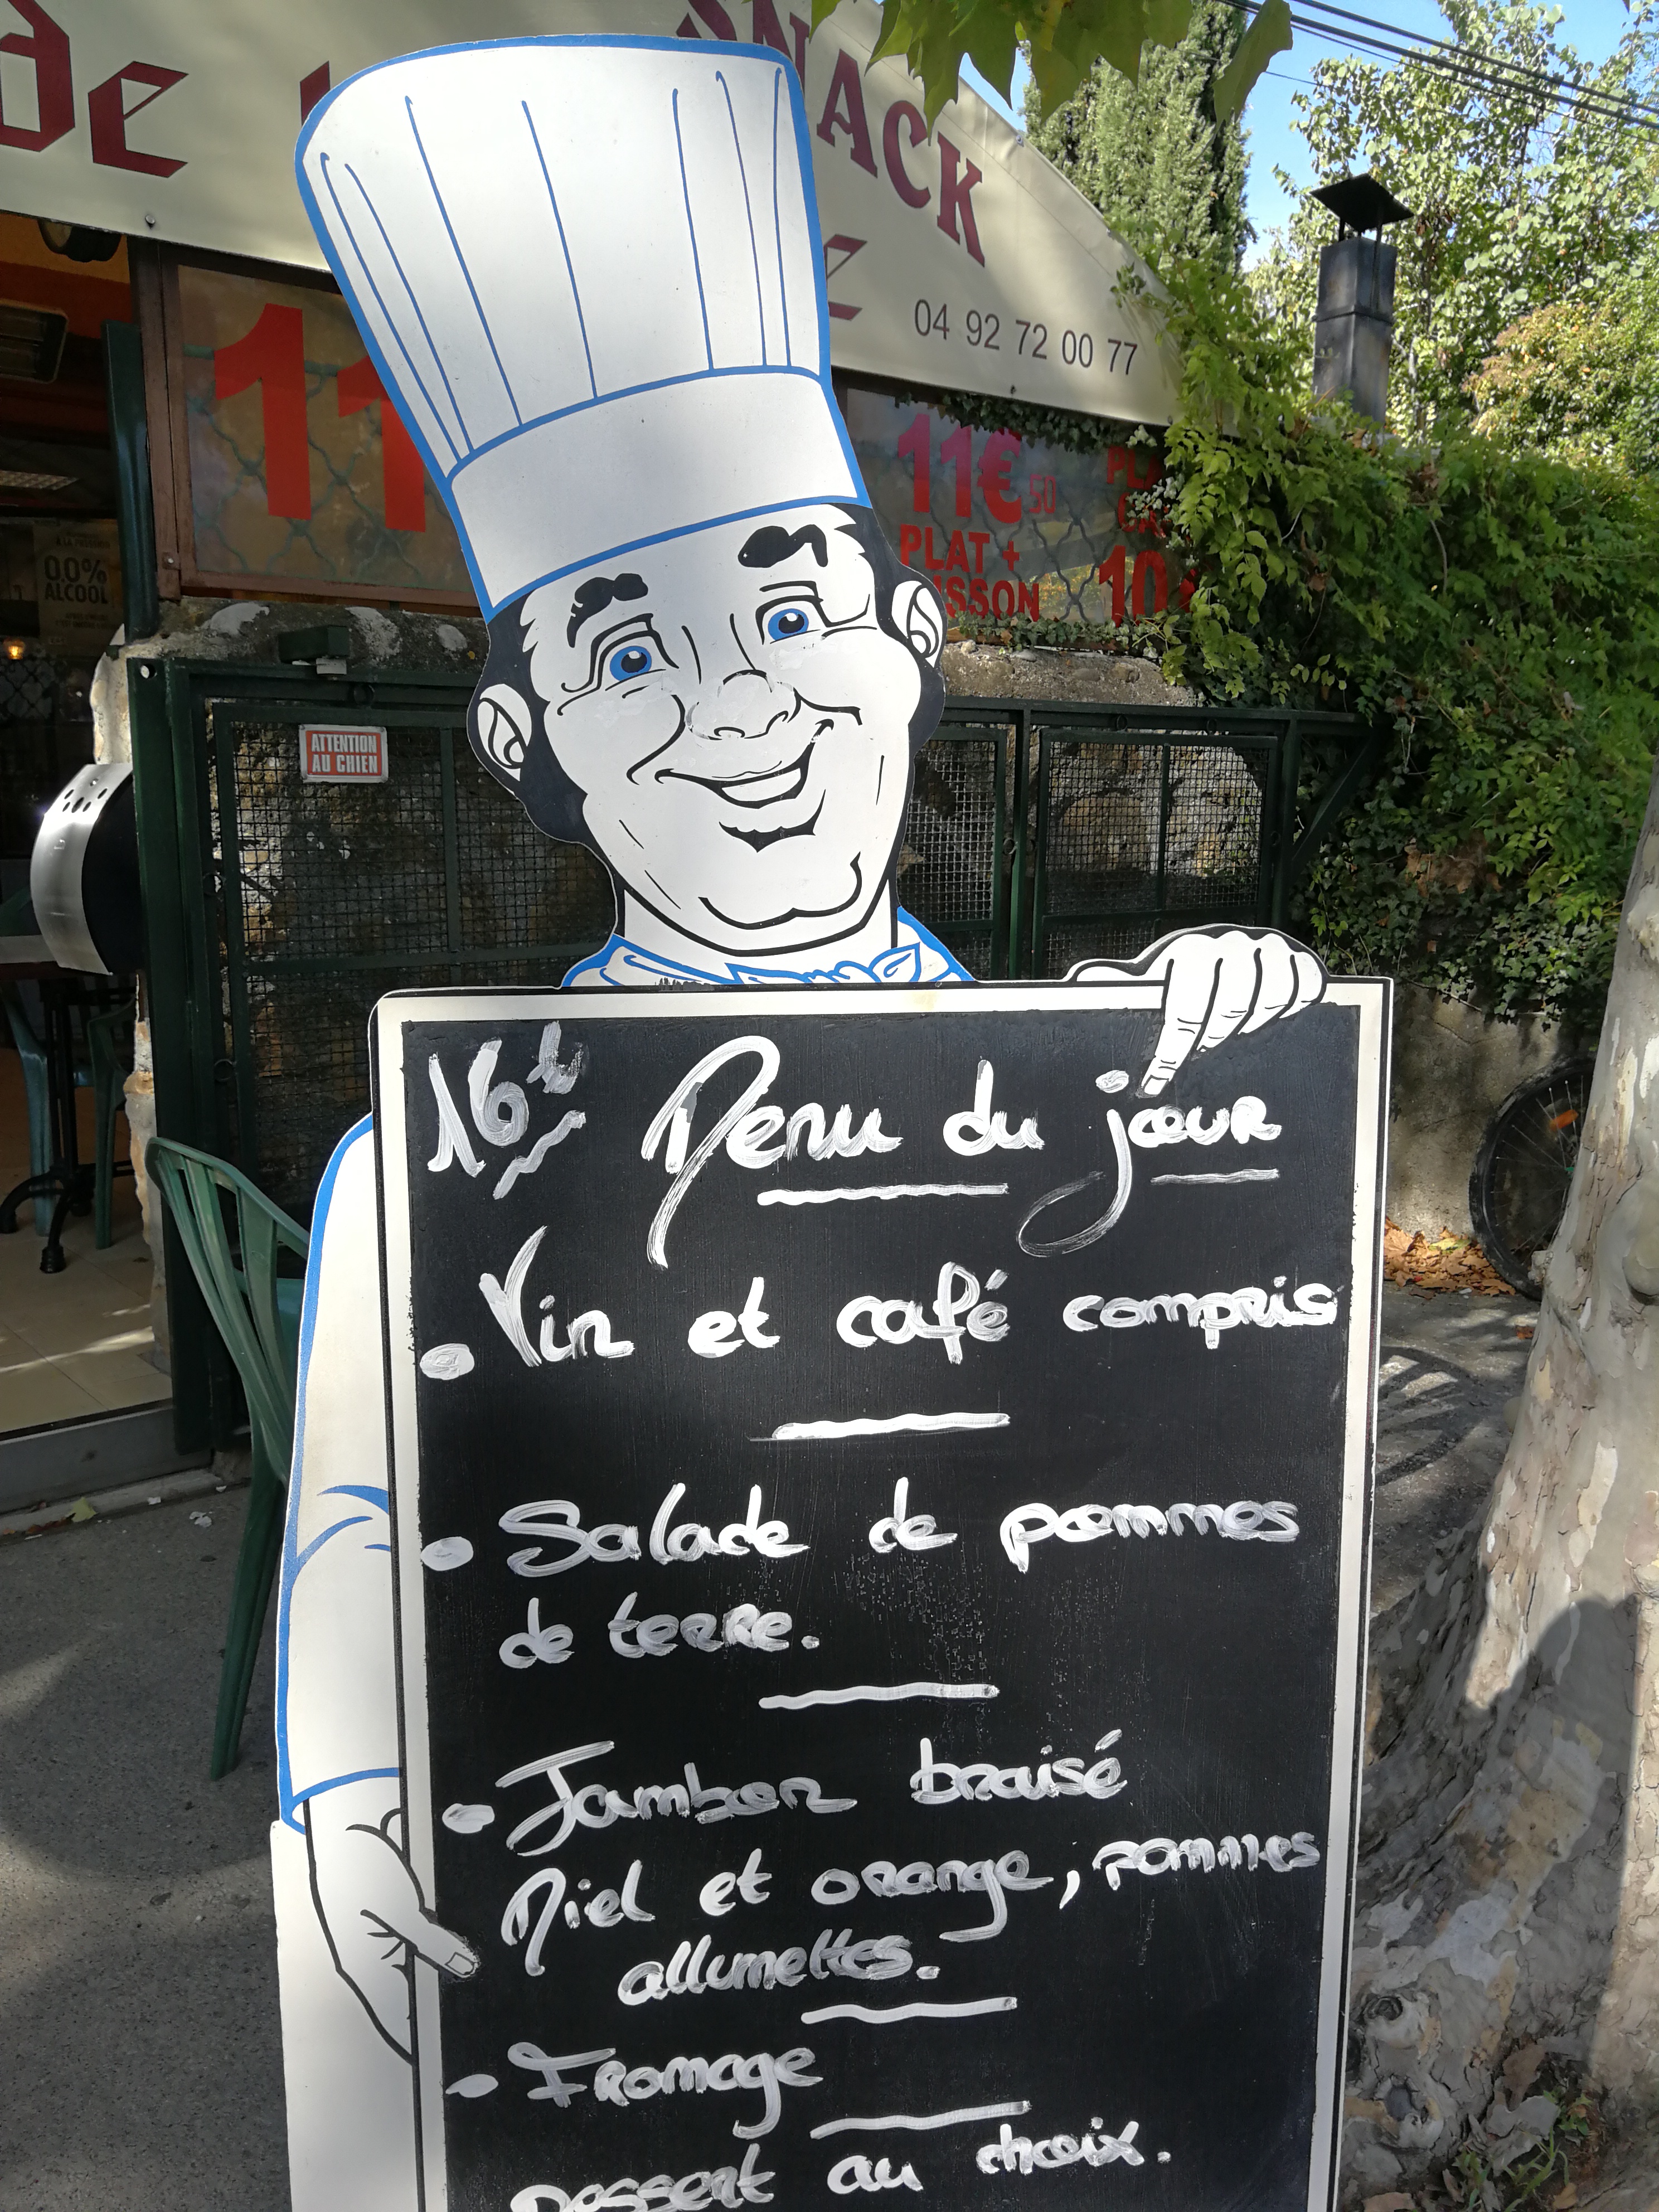 de
SNACK
04 92 72 00 77
11
11€.50
PLAT +
10
0.0%
ALCOOL
ATTENTION
AU CHIEN
16€ Menu du jour
• Vin et café compris
• Salade de pommes
de terre.
• Jambon braisé
Miel et orange, pommes
allumettes.
- Fromage
Dessert au choix.